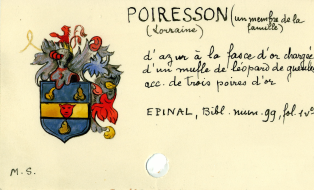 POIRESSON (un membre de la
famille)
(Lorraine)
d'azur à la fasce d'or chargée
d'un mufle de léopard de gueules
acc. de trois poires d'or
EPINAL, Bibl. mun. 99, fol. 1vº
M.S.